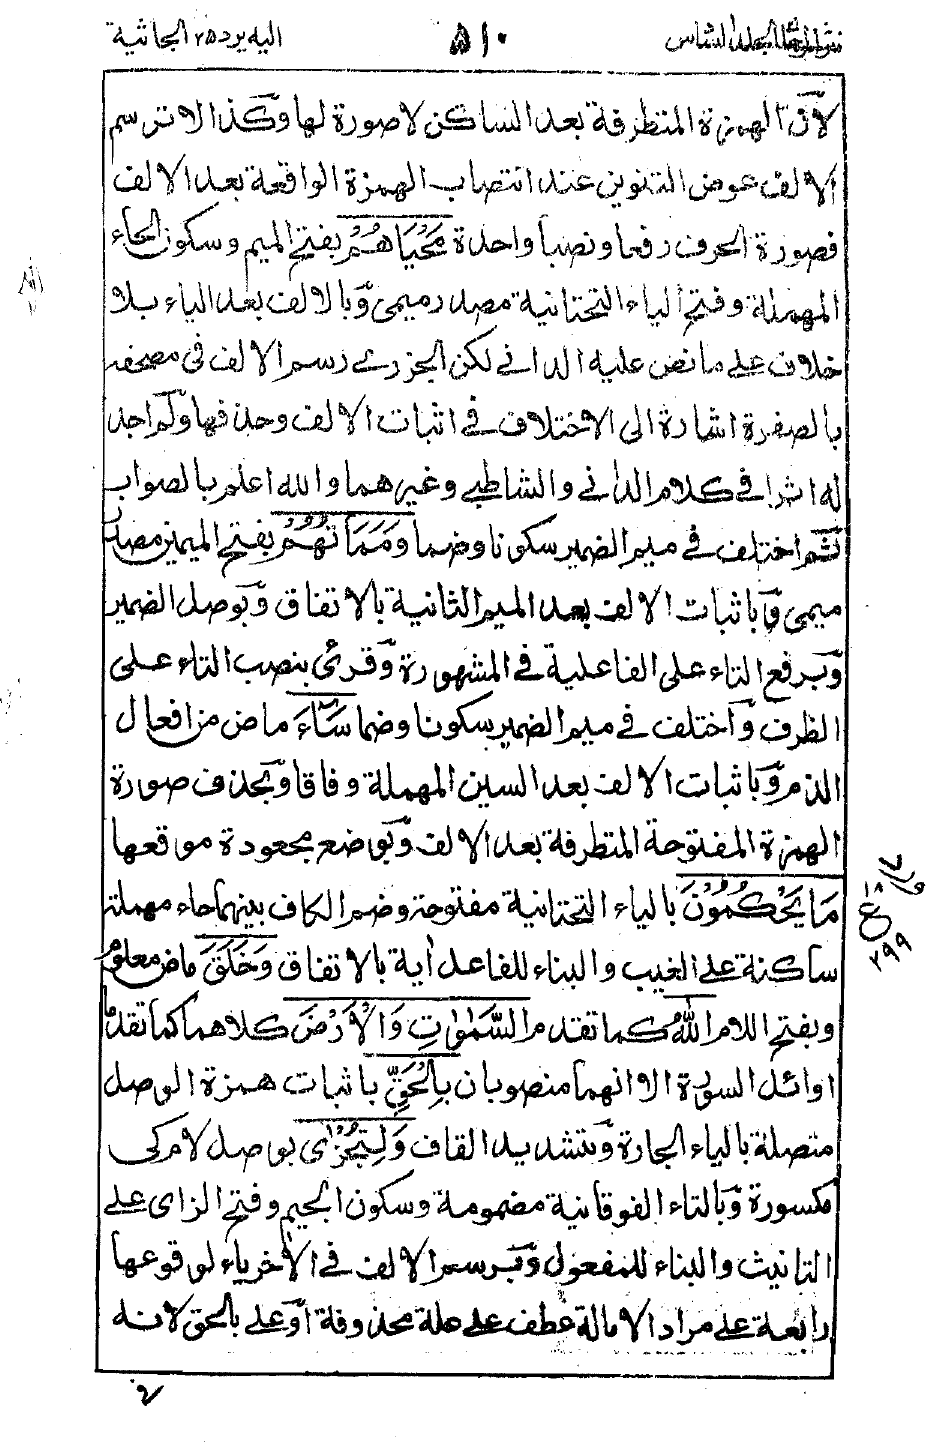 نثر المرجان المجلد السادس ٥١٠ اليه يرد ٢٥ الجاثية
لانّ الهمزة المتطرفة بعد الساكن لا صورة لها وكذا لا ترسم
الالف عوض التنوين عند انتصاب الهمزة الواقعة بعد الالف
فصورة الحرف رفعا ونصبا واحدة مَحْيَاهُمْ بفتح الميم وسكون الحاء
المهملة وفتح الياء التحتانية مصدر ميمى وبالالف بعد الياء بلا
خلاف على ما نص عليه الدانى لكن الجزرى رسم الالف فى مصحفه
بالصفرة اشارة الى الاختلاف فى اثبات الالف وحذفها ولم اجد
له اثرا فى كلام الدانى والشاطبى وغيرهما والله اعلم بالصواب
ثم اختلف فى ميم الضمير سكونا وضما وَمَمَاتُهُمْ بفتح الميمين مصدر
ميمى وباثبات الالف بعد الميم الثانية بالاتفاق وبوصل الضمير
وبرفع التاء على الفاعلية فى المشهورة وقرئ بنصب التاء على
الظرف واختلف فى ميم الضمير سكونا وضما سَآءَ ماض من افعال
الذم وباثبات الالف بعد السين المهملة وفاقا وبحذف صورة
الهمزة المفتوحة المتطرفة بعد الالف وبوضع مجعودة موقعها
مَا يَحْكُمُوْنَ بالياء التحتانية مفتوحة وضم الكاف بينهما حاء مهملة
ساكنة على الغيب والبناء للفاعل أية بالاتفاق وَخَلَقَ ماض معلوم
وبفتح اللام اللّٰهُ كما تقدم السَّمٰوٰتِ وَالْاَرْضَ كلاهما كما تقدما
اوائل السورة الا انهما منصوبان بِالْحَقِّ باثبات همزة الوصل
متصلة بالباء الجارة وبتشديد القاف وَلِتُجْزٰى بوصل لام كى
مكسورة وبالتاء الفوقانية مضمومة وسكون الجيم وفتح الزاى على
التانيث والبناء للمفعول وبرسم الالف فى الأخر ياء لوقوعها
رابعة على مراد الامالة عطف على علة محذوفة او على بالحق لانه
١٨
ع
٢٩٩